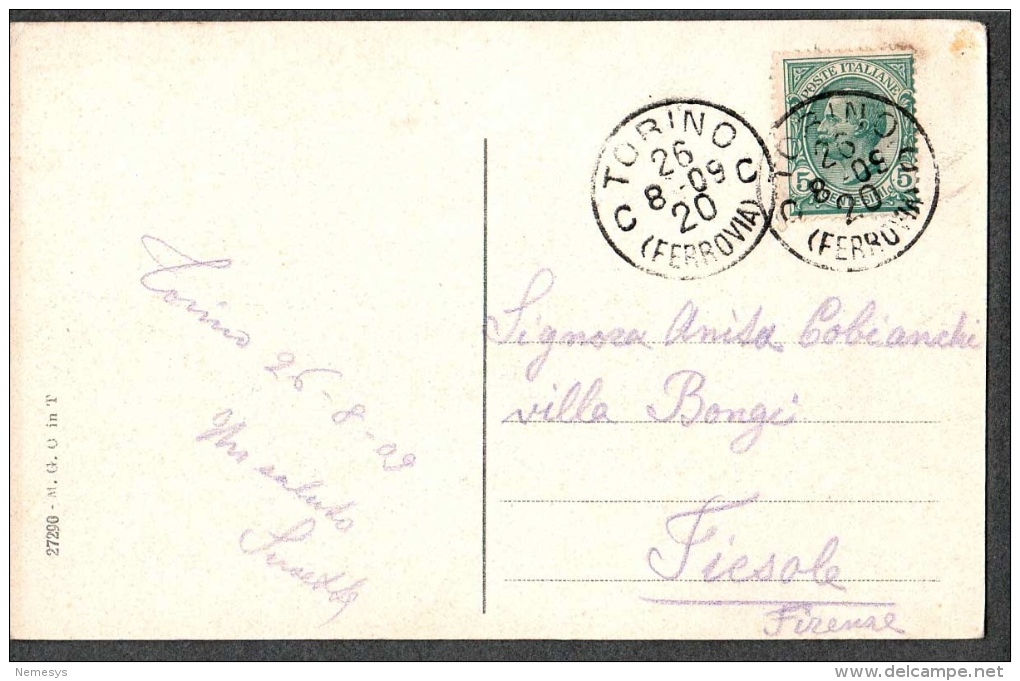 POSTE ITALIANE
5 5
TORINO
26
8-09
20
C C
(FERROVIA)
TORINO
26
8-09
20
C
(FERROVIA)
Torino
26-8-09
Un saluto
Signora Anita Cobianchi
villa Bongi
Fiesole
Firenze
27290 - M. G. in T
Nemesys
www.delcampe.net